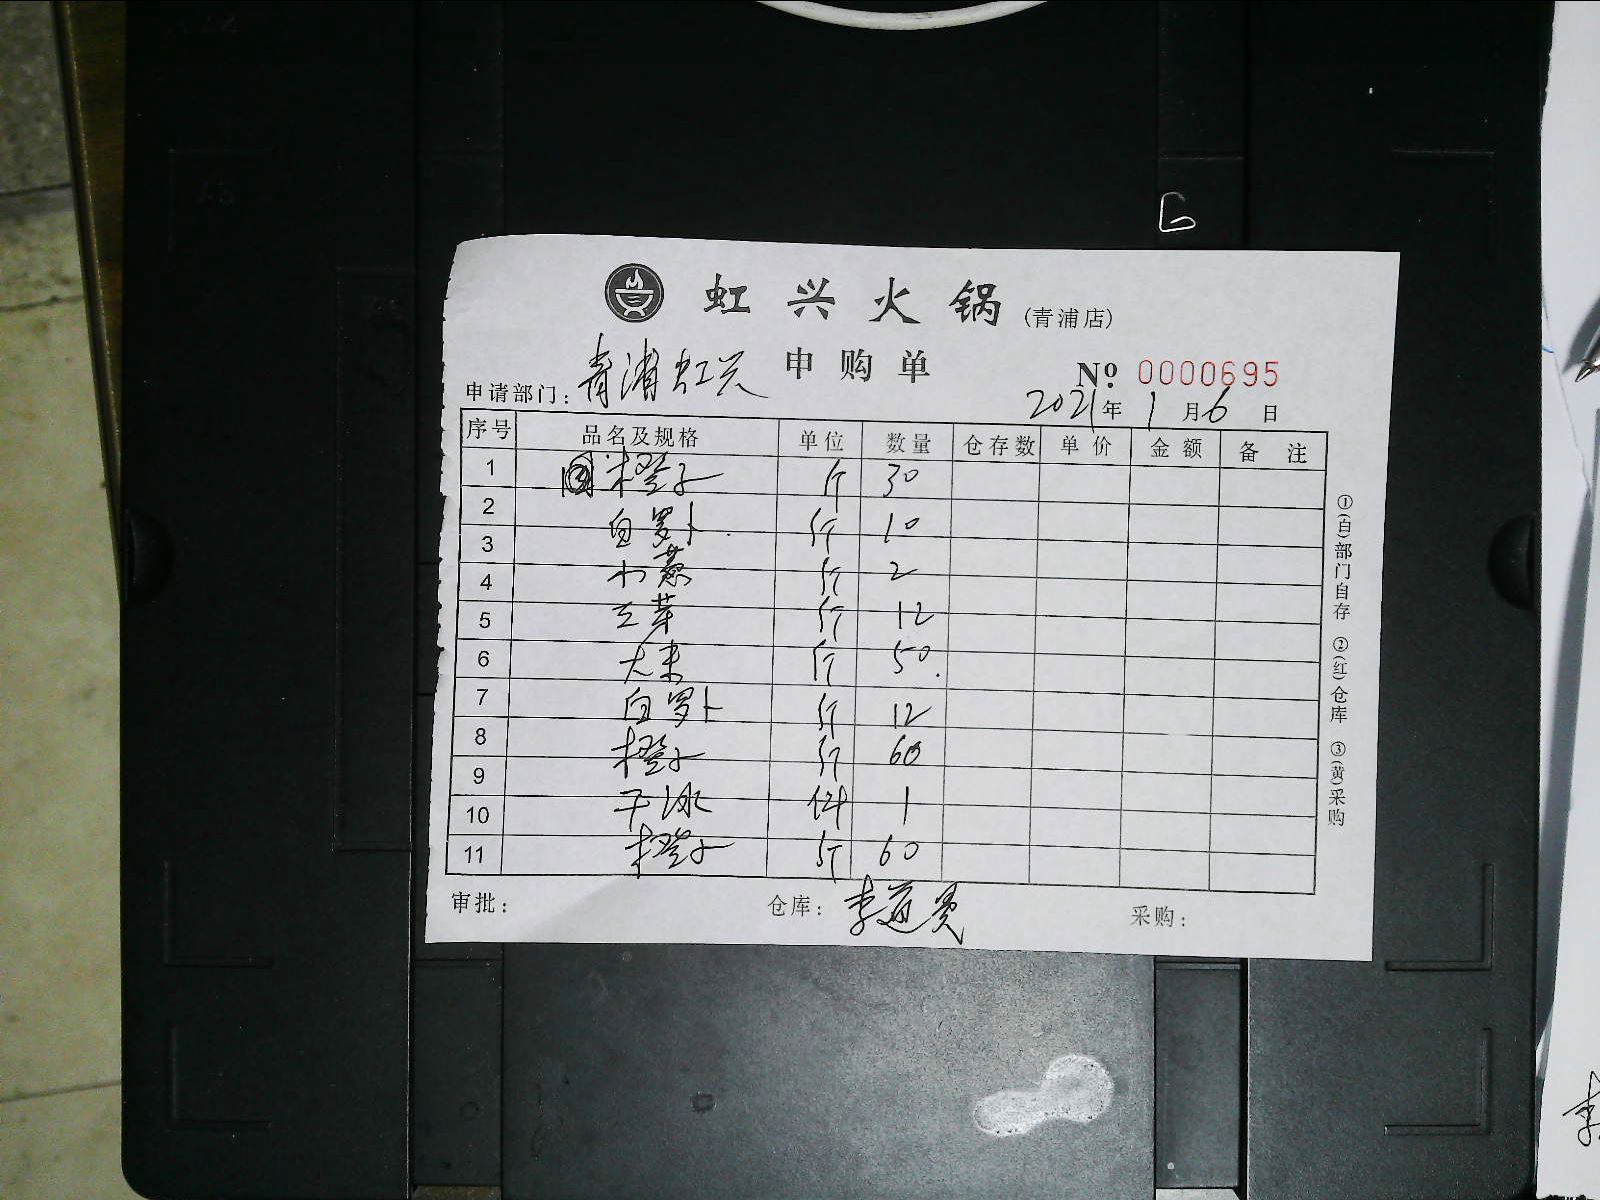 虹兴火锅(青浦店)
申购单
申请部门: 青浦虹兴 Nº 0000695
2021年1月6日
序号 品名及规格 单位 数量 仓存数 单价 金额 备注
1 橙子 斤 30
2 白萝卜 斤 10
3 小葱 斤 2
4 豆芽 斤 12
5 大米 斤 50
6 白萝卜 斤 12
7 橙子 斤 60
8 干冰 件 1
9 橙子 斤 60
10
11
审批: 仓库: 采购:
①(白)部门自存 ②(红)仓库 ③(黄)采购